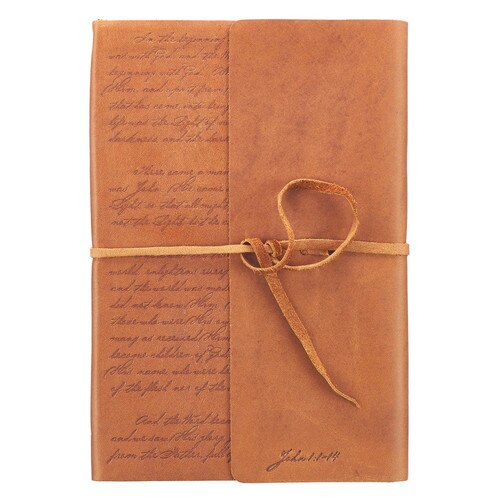 In the beginning
was with God, and the
beginning with God. A
Him, and apart from
that has come into being
life was the Light of
darkness, and the
there came a man
was John. He
Light, so that all might
not the Light, but he
world, enlightens every
and the
did not know Him.
those who were His
many as received Him
become children of God
His name, who were
of the flesh nor of the
And the Word became
and we saw His glory,
from the Father, full
John 1:1-14